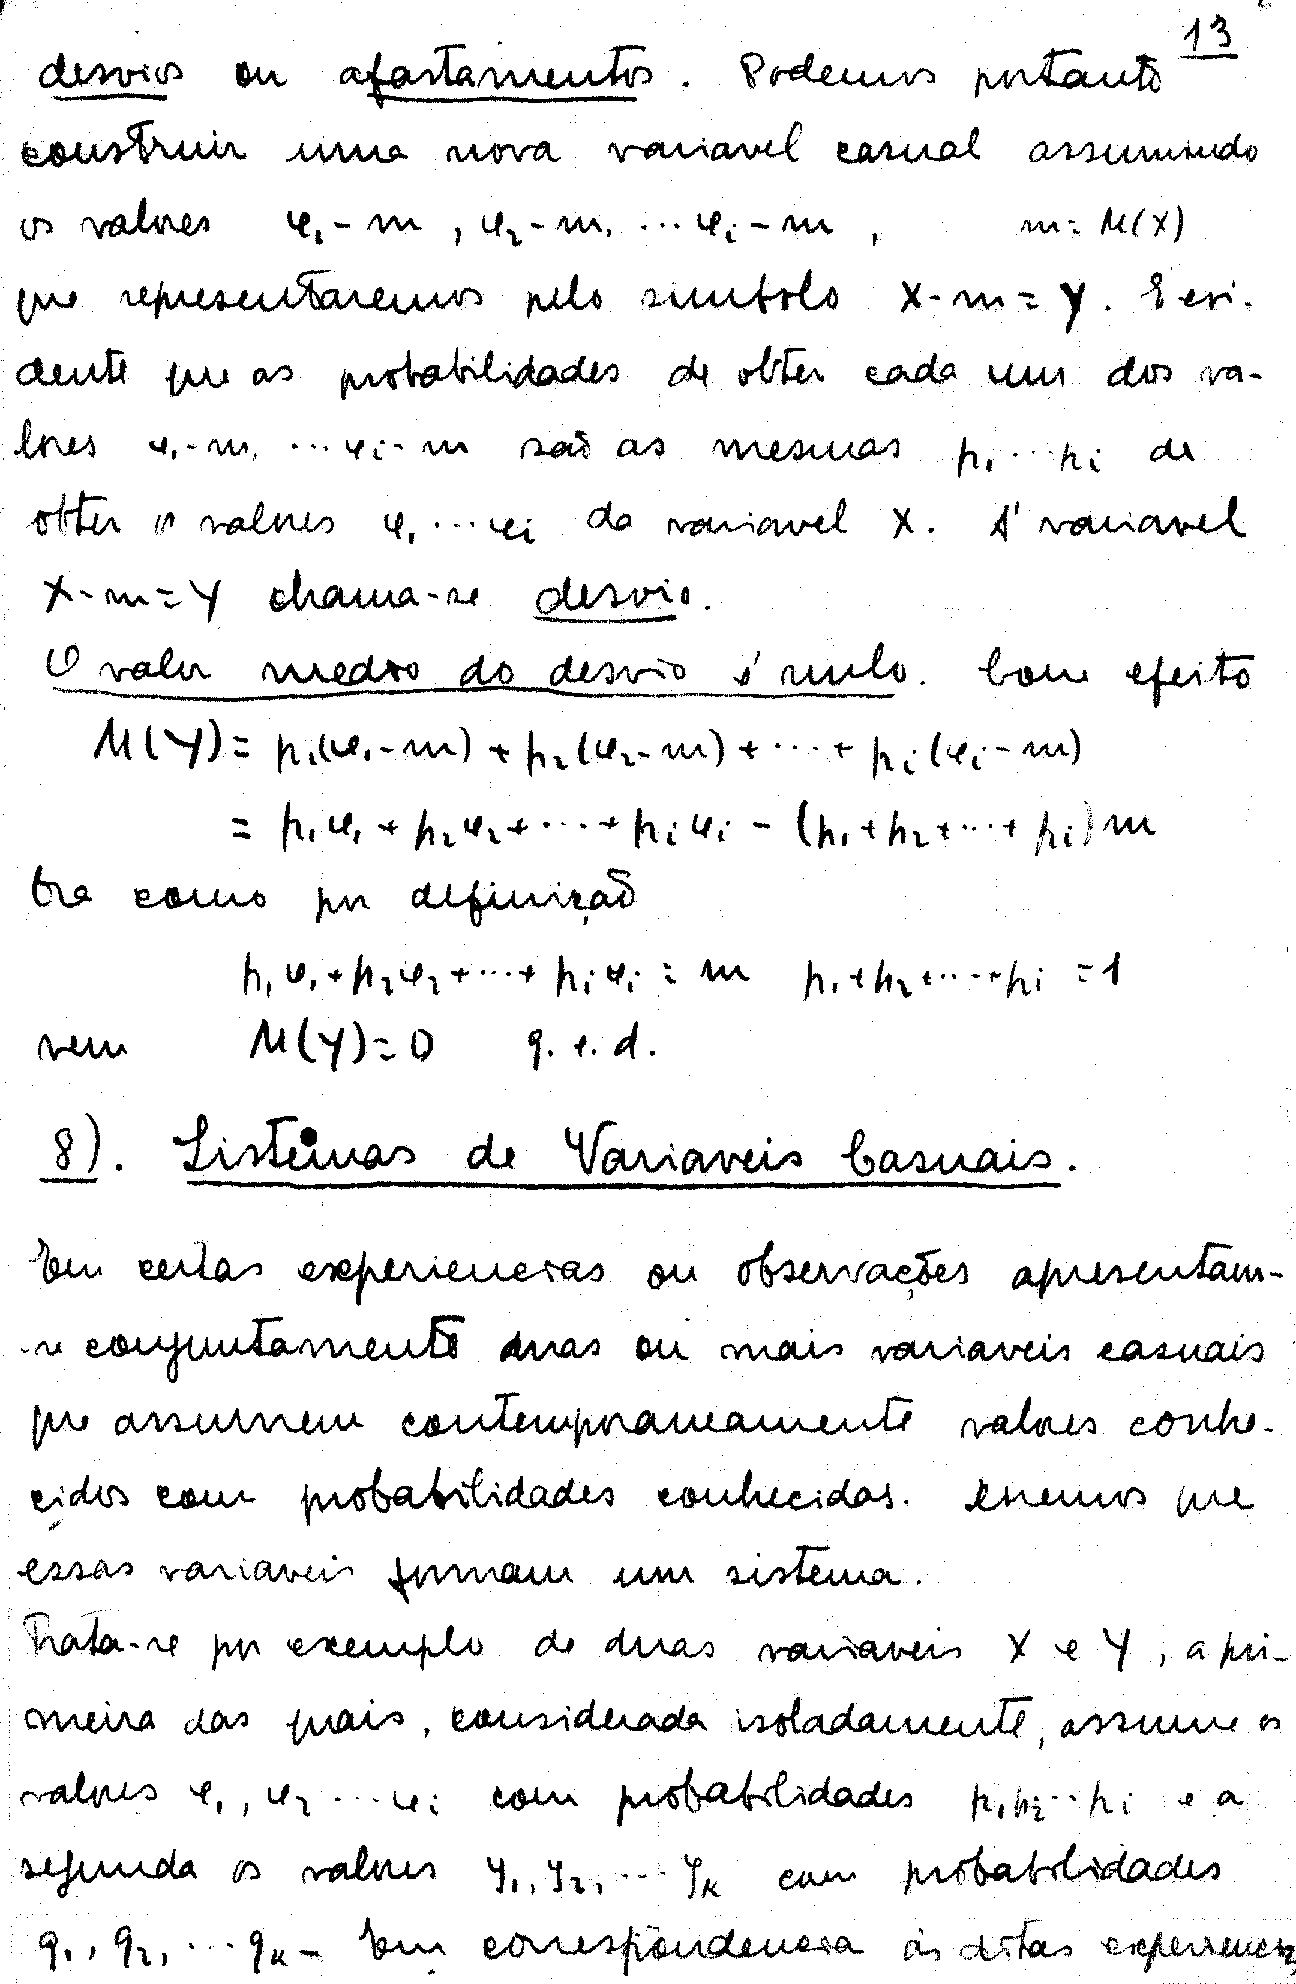 13
desvios ou afastamentos. Podemos portanto
construir uma nova variavel casual assumindo
os valores φ₁-m, φ₂-m, ...φᵢ-m, m=M(X)
que representaremos pelo simbolo X-m=Y. E evi-
dente que as probabilidades de obter cada um dos va-
lores φ₁-m, ...φᵢ-m são as mesmas p₁...pᵢ de
obter os valores φ₁...φᵢ da variavel X. A' variavel
X-m=Y chama-se desvio.
O valor medio do desvio é nulo. Com efeito
M(Y)= p₁(φ₁-m)+p₂(φ₂-m)+...+pᵢ(φᵢ-m)
= p₁φ₁+p₂φ₂+...+pᵢφᵢ-(p₁+p₂+...+pᵢ)m
Ora como por definição
p₁φ₁+p₂φ₂+...+pᵢφᵢ=m p₁+p₂+...+pᵢ=1
vem M(Y)=0 q.e.d.
8). Sistemas de Variaveis Casuais.
Em certas experiencias ou observações apresentam-
-se conjuntamente duas ou mais variaveis casuais
que assumem contemporaneamente valores conhe-
cidos com probabilidades conhecidas. Diremos que
essas variaveis formam um sistema.
Trata-se por exemplo de duas variaveis X e Y, a pri-
meira das quais, considerada isoladamente, assume os
valores φ₁, φ₂...φᵢ com probabilidades p₁p₂...pᵢ e a
segunda os valores y₁, y₂, ...yₖ com probabilidades
q₁, q₂, ...qₖ- Em correspondencia ás ditas experiencias